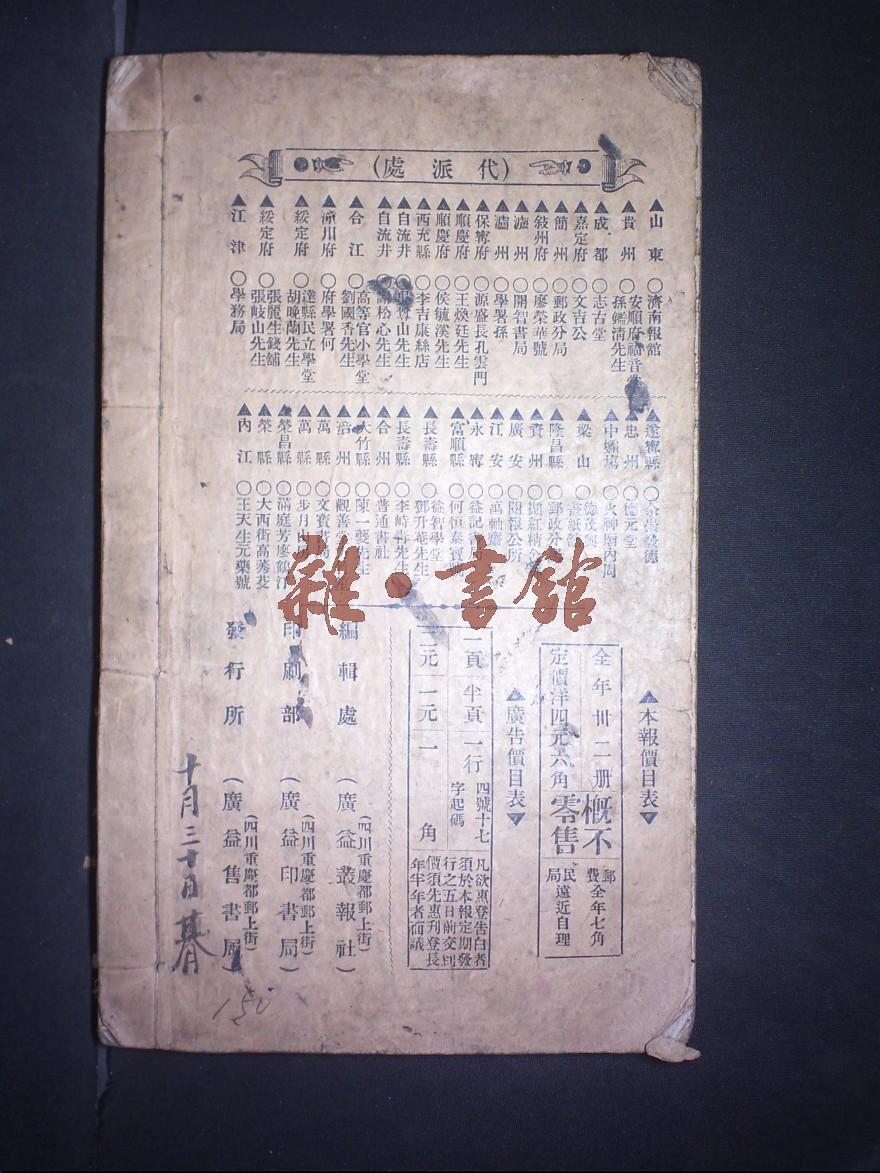 (代派處)
▲山東 ○濟南報館
▲貴州 安順府福音堂
○孫鑑清先生
▲成都 ○志古堂
▲嘉定府 ○文吉公
▲簡州 ○郵政分局
▲敍州府 ○廖榮華號
▲瀘州 ○開智書局
▲瀘州 ○學署孫
▲保寗府 ○源盛長孔雲門
▲順慶府 ○王煥廷先生
▲順慶府 ○侯毓溪先生
▲西充縣 ○李吉康絲店
▲自流井 山先生
▲自流井 松心先生
▲合江 ○高等官小學堂
劉國香先生
▲潼川府 ○府學署何
▲綏定府 ○達縣民立學堂
胡晚蘭先生
▲綏定府 ○張麗生錢舖
張岐山先生
▲江津 ○學務局
▲遂寗縣
▲忠州 ○德元堂
▲中壩場 ○火神廟內周
▲梁山
▲隆昌縣 ○郵政分
▲資州
▲廣安 ○閱報公所
▲江安 ○萬軸齋
▲永寗 ○益記書
▲富順縣 ○何恒泰寶號
▲長壽縣 ○益智學堂
鄧升菴先生
▲長壽縣 ○李峙青先生
▲合州 ○普通書社
▲大竹縣 ○陳一夔先生
▲涪州 ○觀善
▲萬縣 ○文寶書局
▲萬縣 ○步月山
▲榮昌縣 ○滿庭芳廖鶴汀
▲榮縣 ○大西街高秀斐
▲內江 ○王天生元藥號
▲本報價目表▼
全年卅二册
定價洋四元六角
概不零售
郵費全年七角
民局遠近自理
▲廣告價目表▼
一頁 半頁 一行
四號十七字起碼
二元 一元 一角
凡欲惠登告白者
須於本報定期發
行之五日前交到
價須先惠刊登長
年半年者面議
編輯處 (四川重慶都郵上街)(廣益叢報社)
印刷部 (四川重慶都郵上街)(廣益印書局)
發行所 (四川重慶都郵上街)(廣益售書局)
十月三十日
150
雜·書館